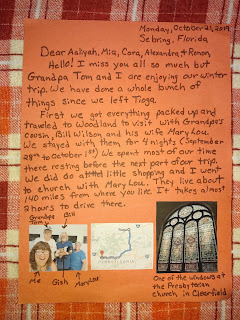 Monday, October 21, 2019
Sebring, Florida
Dear Aaliyah, Mia, Cora, Alexandra + Ronon,
Hello! I miss you all so much but
Grandpa Tom and I are enjoying our winter
trip. We have done a whole bunch of
things since we left Tioga.
First we got everything packed up and
traveled to Woodland to visit with Grandpa's
cousin, Bill Wilson and his wife Mary Lou.
We stayed with them for 4 nights (September
28th to October 1st) We spent most of our time
there resting before the next part of our trip.
We did do a little shopping and I went
to church with Mary Lou. They live about
140 miles from where you live. It takes almost
2 hours to drive there.
Grandpa
Tom
Bill
Me
Gish
Mary Lou
PENNSYLVANIA
One of the windows at
the Presbyterian
church in Clearfield